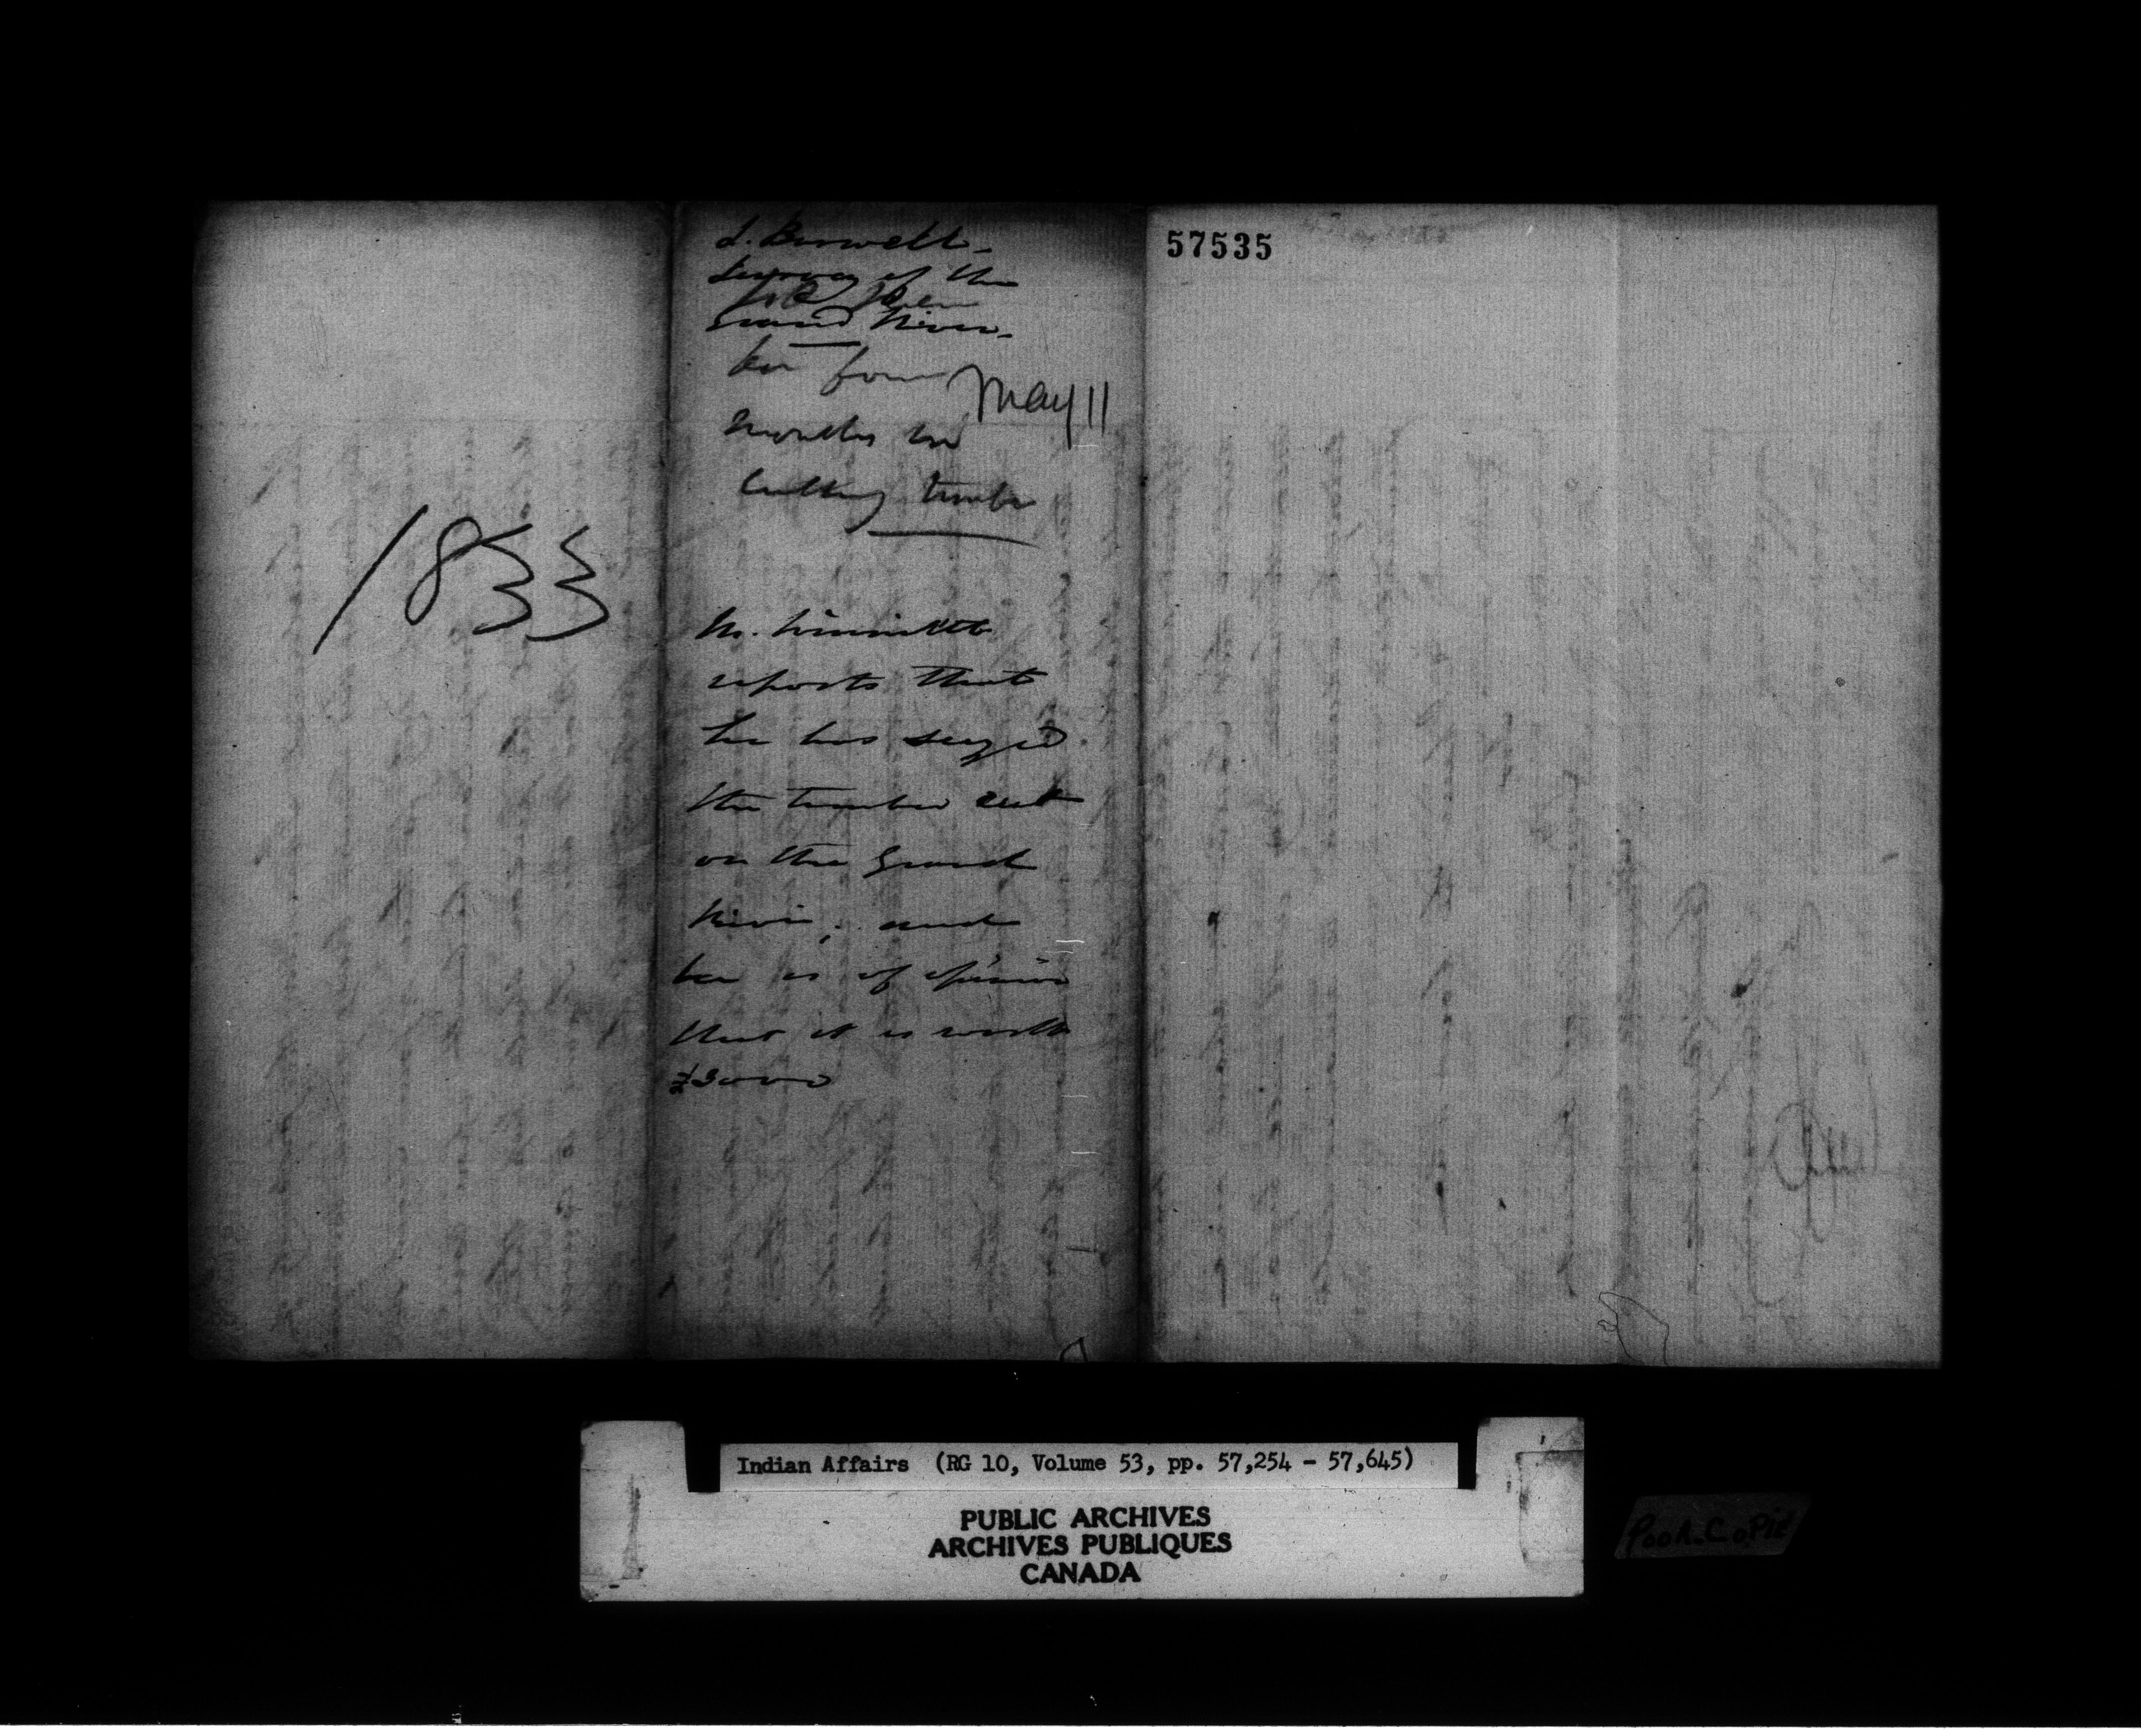 1833
L. Burwell.
Survey of the
Grand River.
for four
May 11
Months in
Cutting timber
Mr.
reports that
he has seized
the timber cut
on the Grand
River; and
he is of opinion
that it is worth
£3000
57535
Indian Affairs (RG 10, Volume 53, pp. 57,254 - 57,645)
PUBLIC ARCHIVES
ARCHIVES PUBLIQUES
CANADA
POOR COPIE